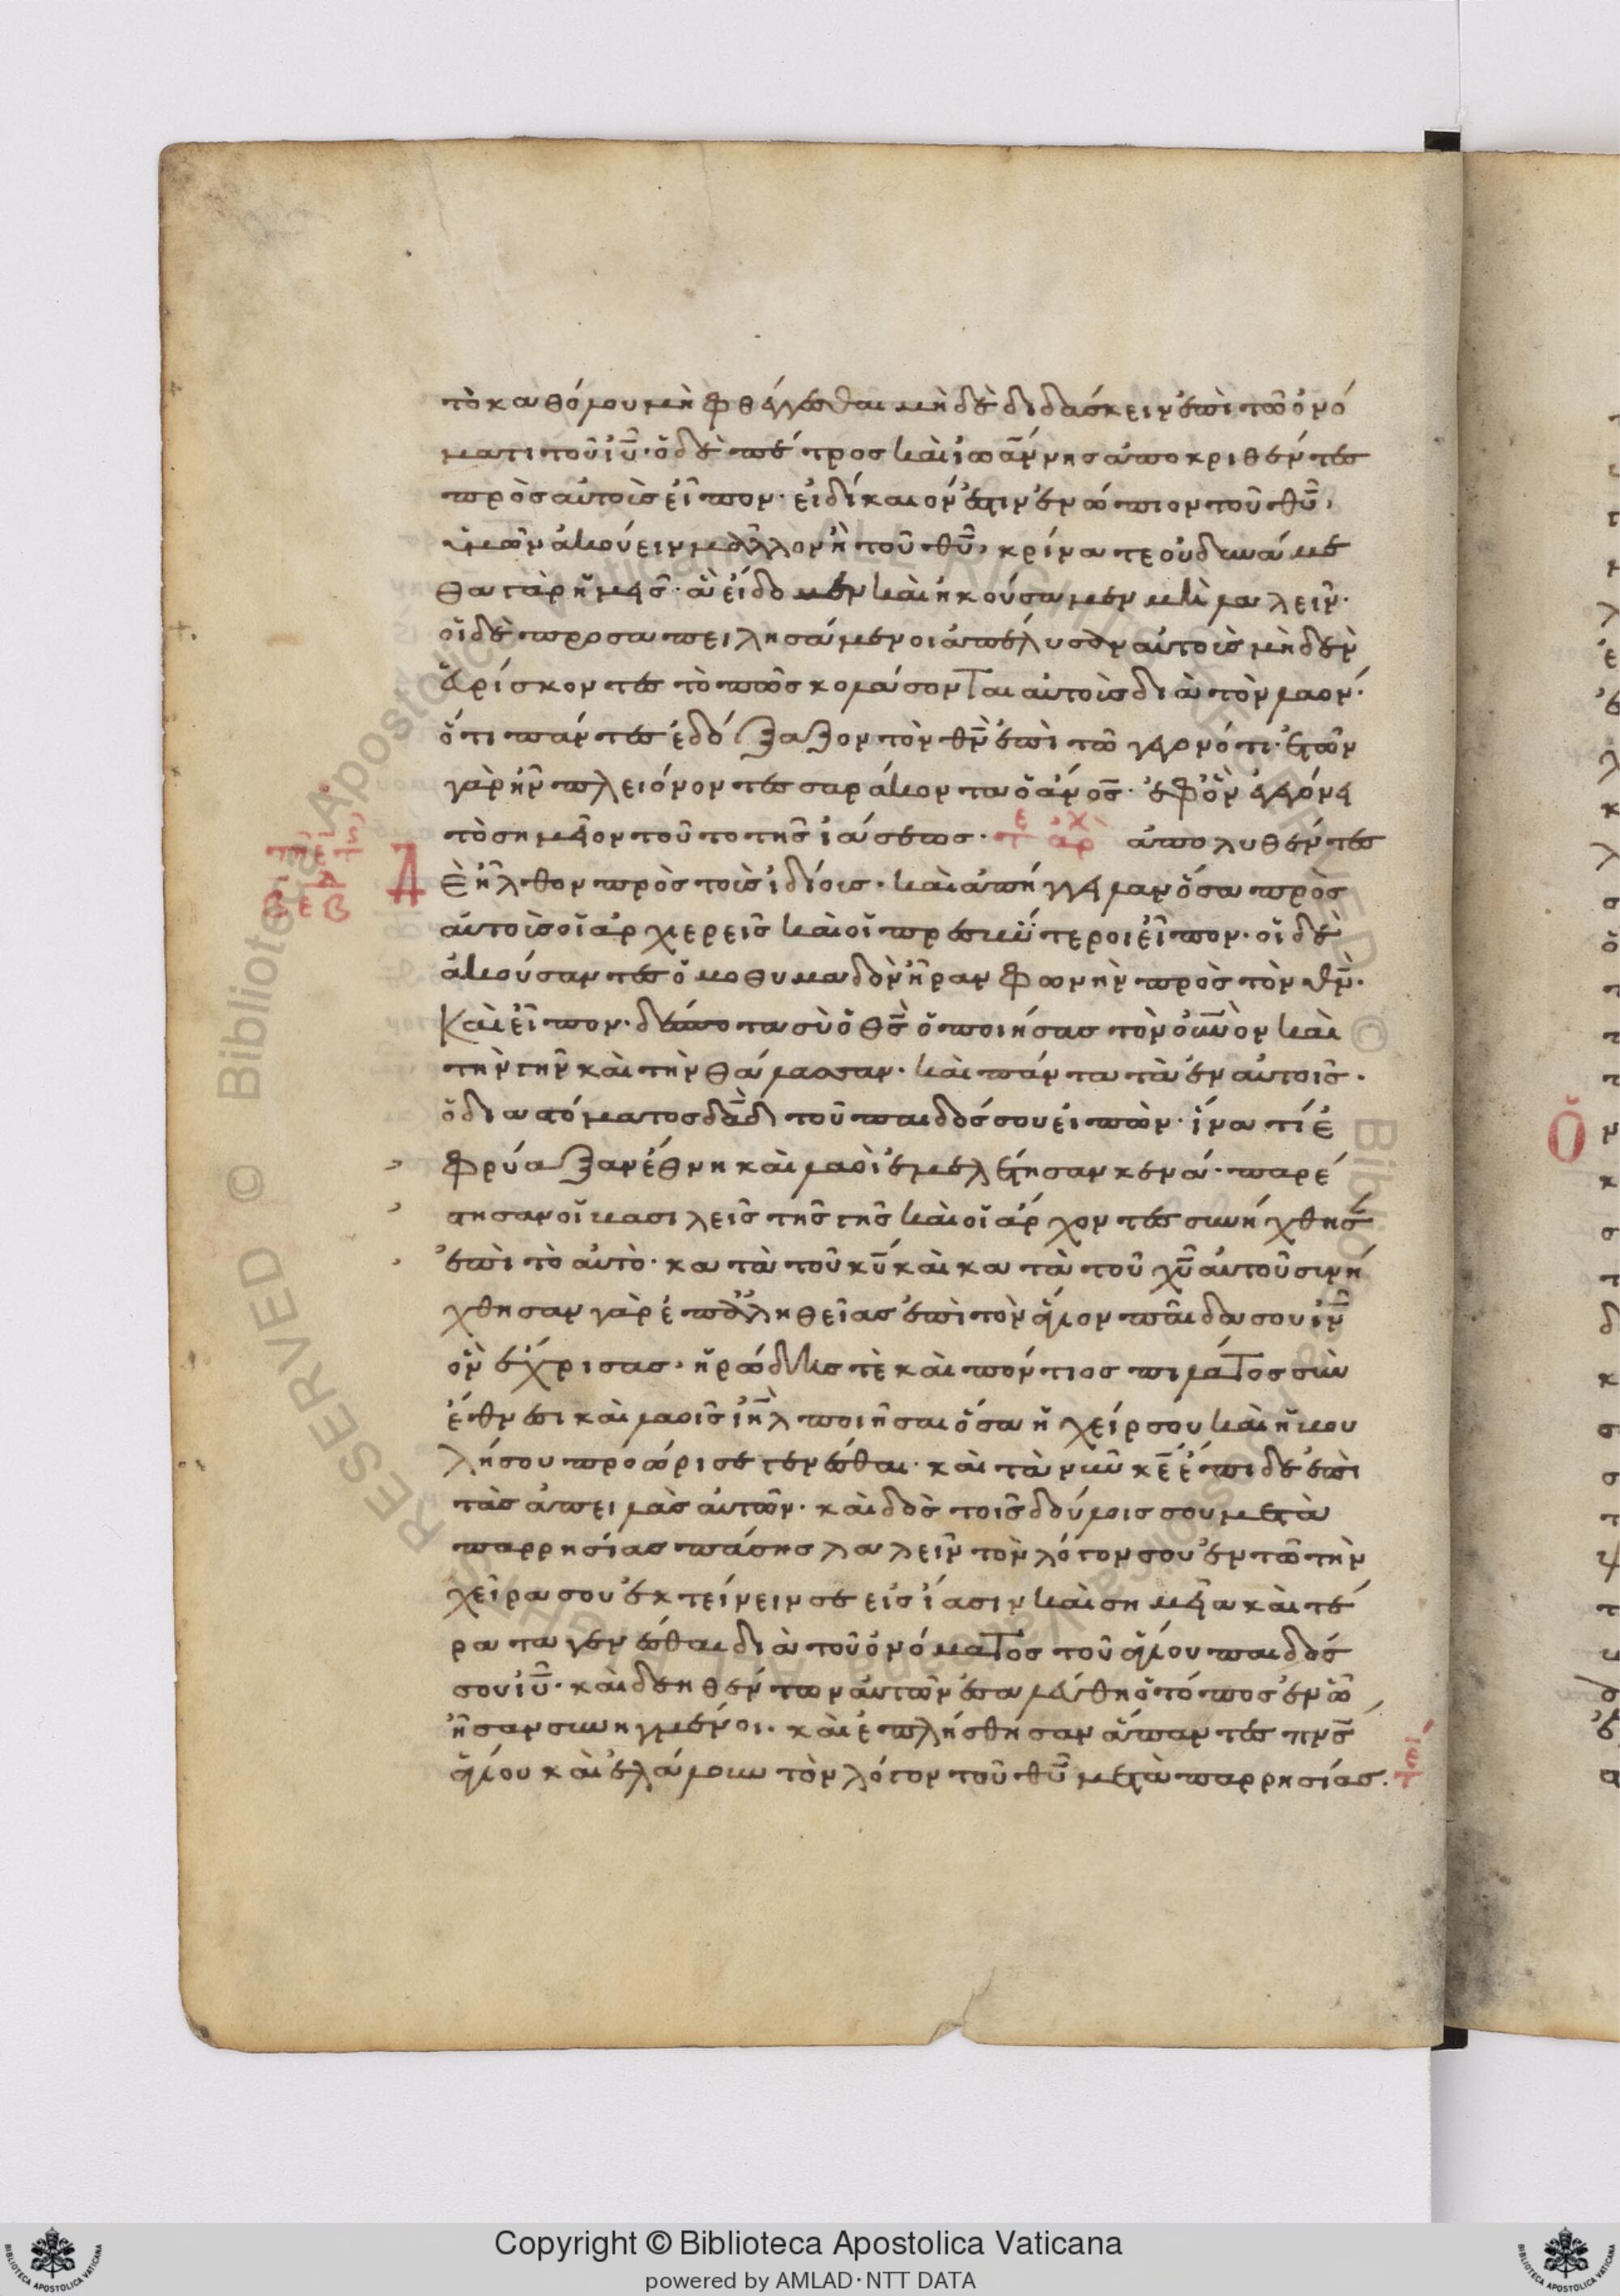 τὸ καθόλου μὴ φθέγγεσθαι μὴ δὲ διδάσκειν ἐπὶ τῶ ὀνό
ματι τοῦ ἰυ̅· ὁ δὲ πέτρος καὶ ἰωάννης ἀποκριθέντες
πρὸς αὐτοὺς εἶπον· εἰ δίκαιόν ἐστιν ἐνώπιον τοῦ θυ̅,
ὑμῶν ἀκούειν μᾶλλον ἢ τοῦ θυ̅, κρίνατε οὐ δυνάμε
θα γὰρ ἡμεῖς· ἃ εἴδομεν καὶ ἠκούσαμεν μὴ λαλεῖν·
οἱ δὲ προσαπειλησάμενοι ἀπέλυσαν αὐτοὺς μὴ δὲν
εὑρίσκοντες τὸ πῶς κολάσονται αὐτοὺς διὰ τὸν λαόν·
ὅτι πάντες ἐδόξαζον τὸν θν̅ ἐπὶ τῶ γεγονότι· ἐτῶν
γὰρ ἦν πλειόνον τεσσαράκοντα ὁ ἄνος̅· ἐφ ὃν ἐγεγόνει
τὸ σημεῖον τοῦτο τῆς ἰάσεως· τε αρχ ἀπολυθέντες
Δὲ ἦλθον πρὸς τοὺς ἰδίους· καὶ ἀπήγγειλαν ὅσα πρὸς
αὐτοὺς οἱ ἀρχιερεῖς καὶ οἱ πρεσβύτεροι εἶπον· οἱ δὲ
ἀκούσαντες ὁμοθυμαδὸν ἦραν φωνὴν πρὸς τὸν θν̅·
Καὶ εἶπον· δέσποτα σὺ ὁ θς̅ ὁ ποιήσας τὸν οὐνὸν καὶ
τὴν γῆν καὶ τὴν θάλασσαν· καὶ πάντα τὰ ἐν αὐτοῖς·
ὁ διὰ στόματος δαδ̅ τοῦ παιδός σου εἰπών· ἵνα τί ἐ
φρύαξαν ἔθνη καὶ λαοὶ ἐμελέτησαν κενά· παρέ
στησαν οἱ βασιλεῖς τῆς γῆς καὶ οἱ ἄρχοντες συνήχθησ̅
ἐπὶ τὸ αὐτὸ· κατὰ τοῦ κυ̅ καὶ κατὰ τοῦ χυ̅ αὐτοῦ συνή
χθησαν γὰρ ἐπ ἀληθείας ἐπὶ τὸν ἅγιον παῖδα σου ἰν̅
ὃν ἔχρισας, ἡρώδης τὲ καὶ πόντιος πιλάτος σὺν
ἔθνεσι καὶ λαοῖς ἰηλ̅ ποιῆσαι ὅσα ἡ χείρ σου καὶ ἡ βου
λή σου προώρισε γενέσθαι· καὶ τὰ νῦν κε̅ ἔπιδε ἐπὶ
τὰς ἀπειλὰς αὐτῶν· καὶ δὸς τοῖς δούλοις σου μετὰ
παρρησίας πάσης λαλεῖν τὸν λόγον σου ἐν τῶ τὴν
χεῖρα σου ἐκτείνειν σε εἰς ἴασιν καὶ σημεῖα καὶ τέ
ρατα γενέσθαι διὰ τοῦ ὀνόματος τοῦ ἁγίου παιδός
σου ἰυ̅· καὶ δεηθέντων αὐτῶν ἐσαλεύθη ὁ τόπος ἐν ὧ
ἦσαν συνηγμένοι· καὶ ἐπλήσθησαν ἅπαντες πνς̅
ἁγίου καὶ ἐλάλουν τὸν λόγον τοῦ θυ̅ μετὰ παρρησίας.
Copyright © Biblioteca Apostolica Vaticana
powered by AMLAD·NTT DATA